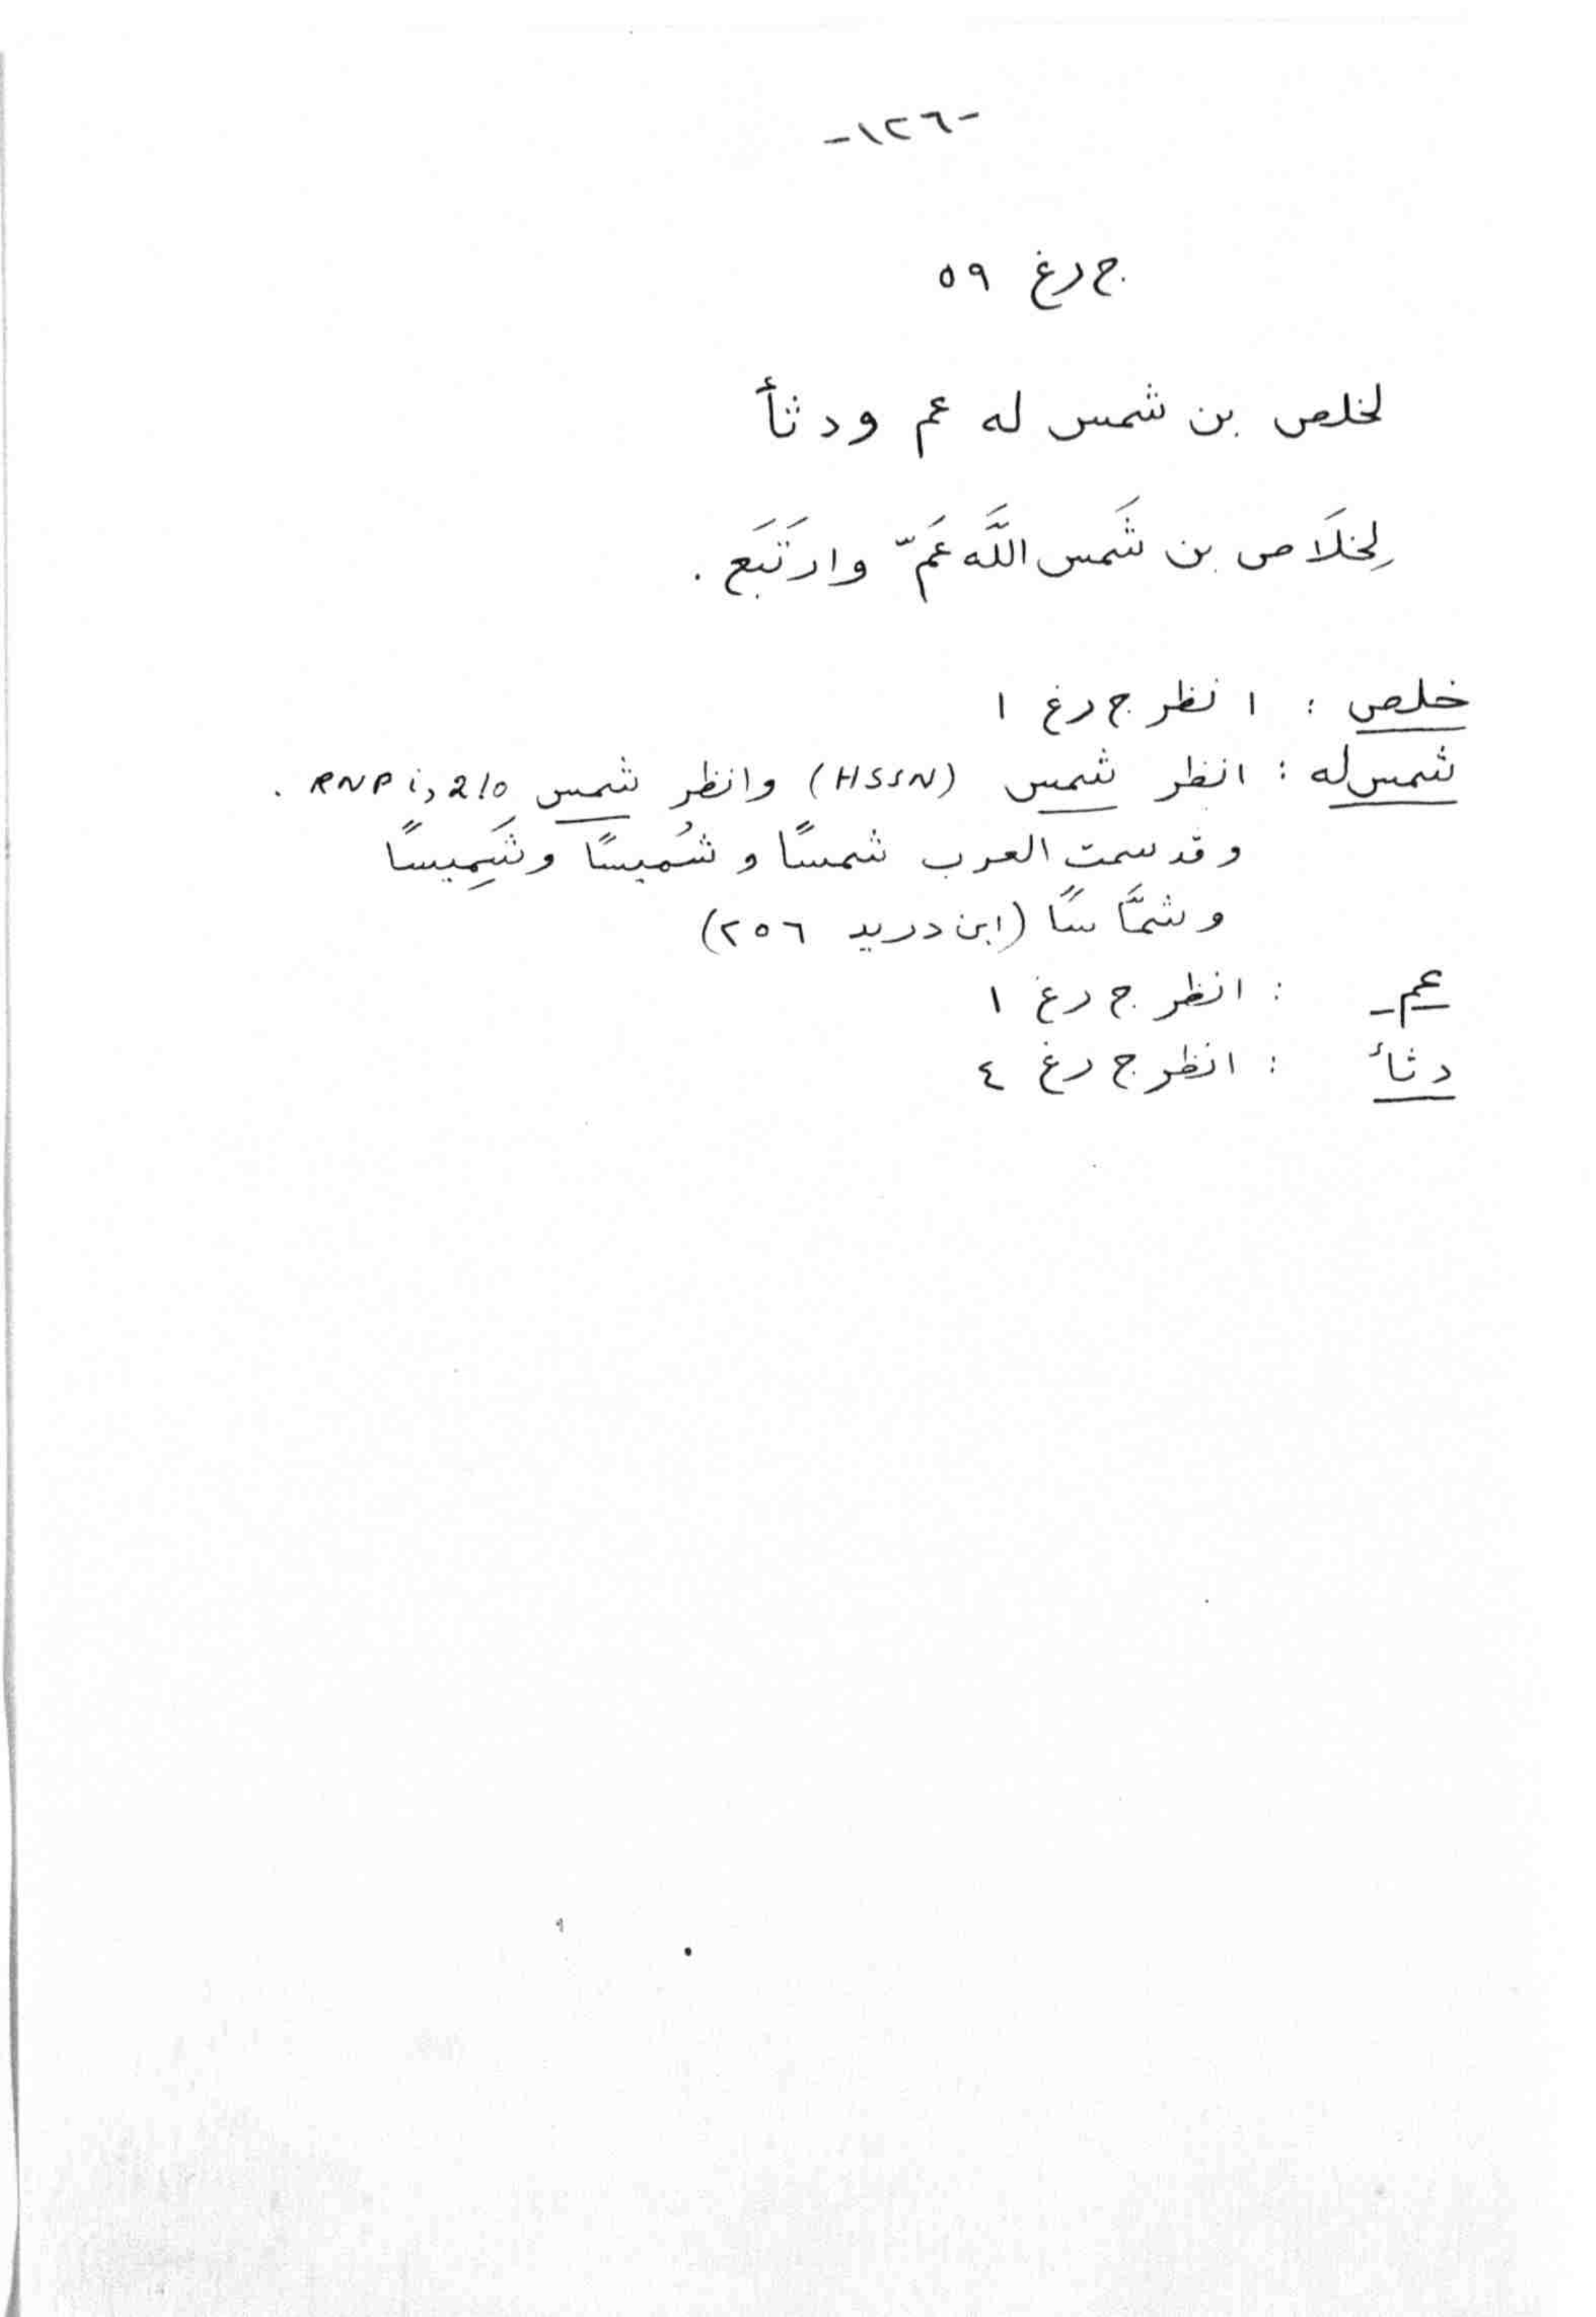 -١٢٦-
ج رغ ٥٩
لخلص بن شمس له عم ودثأ
لِخلَاص بن شَمس اللَّه عَمّ وارتَبَع .
خلص : انظر ج رغ ١
شمس له : انظر شمس (HSSN) وانظر شمس RNP i, 210 .
وقد سمت العرب شمسًا وشُميسًا وشَمِيسًا
وشمَّاسًا (ابن دريد ٢٥٦)
عم : انظر ج رغ ١
دثأ : انظر ج رغ ٤